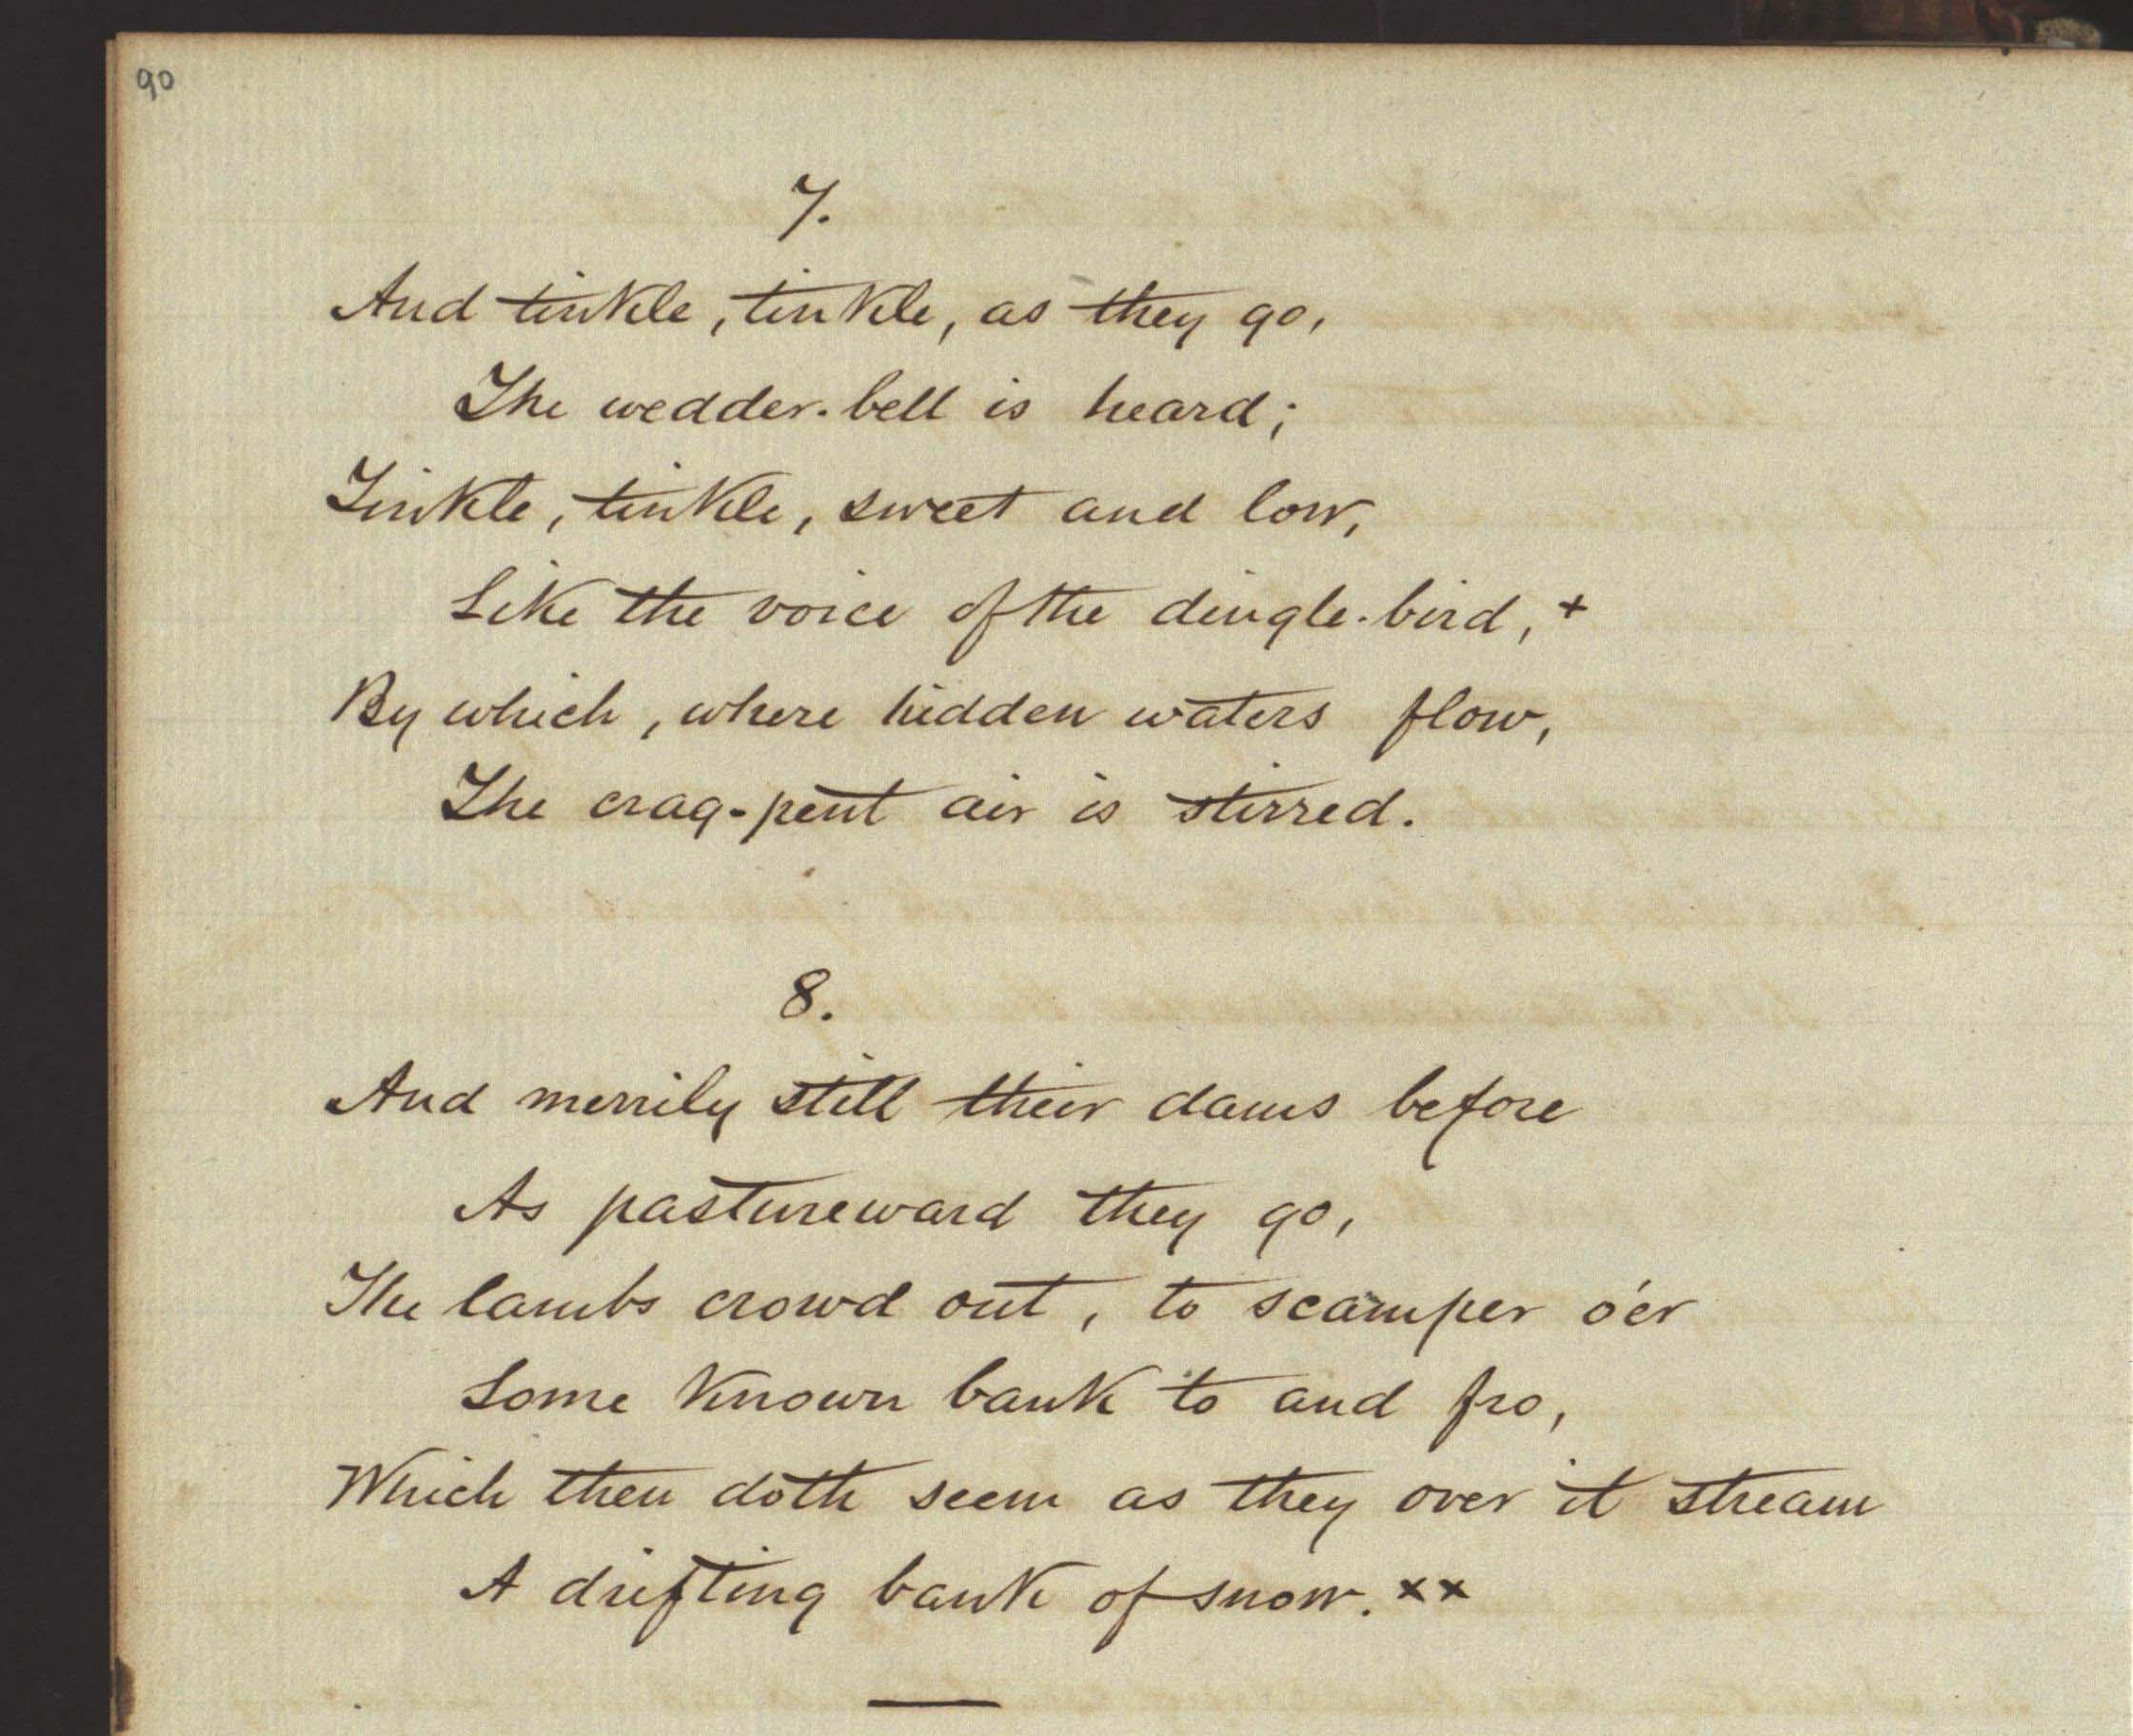 90
7.
And tinkle, tinkle, as they go,
The wedder-bell is heard;
Tinkle, tinkle, sweet and low,
Like the voice of the dingle-bird, +
By which, where hidden waters flow,
The crag-pent air is stirred.
8.
And merrily still their dams before
As pastureward they go,
The lambs crowd out, to scamper o'er
Some known bank to and fro,
Which then doth seem as they over it stream
A drifting bank of snow. xx